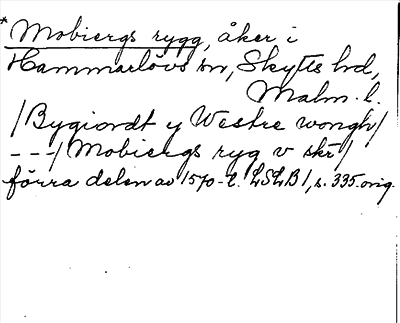 * Mobiergs rygg, åker i
Hammarlövs sn, Skytts hd,
Malm. l.
/Bygiordt y Westre wongh/
---/Mobiergs ryg v skr/
förra delen av 1570-t. LSLB 1, s. 335. orig.